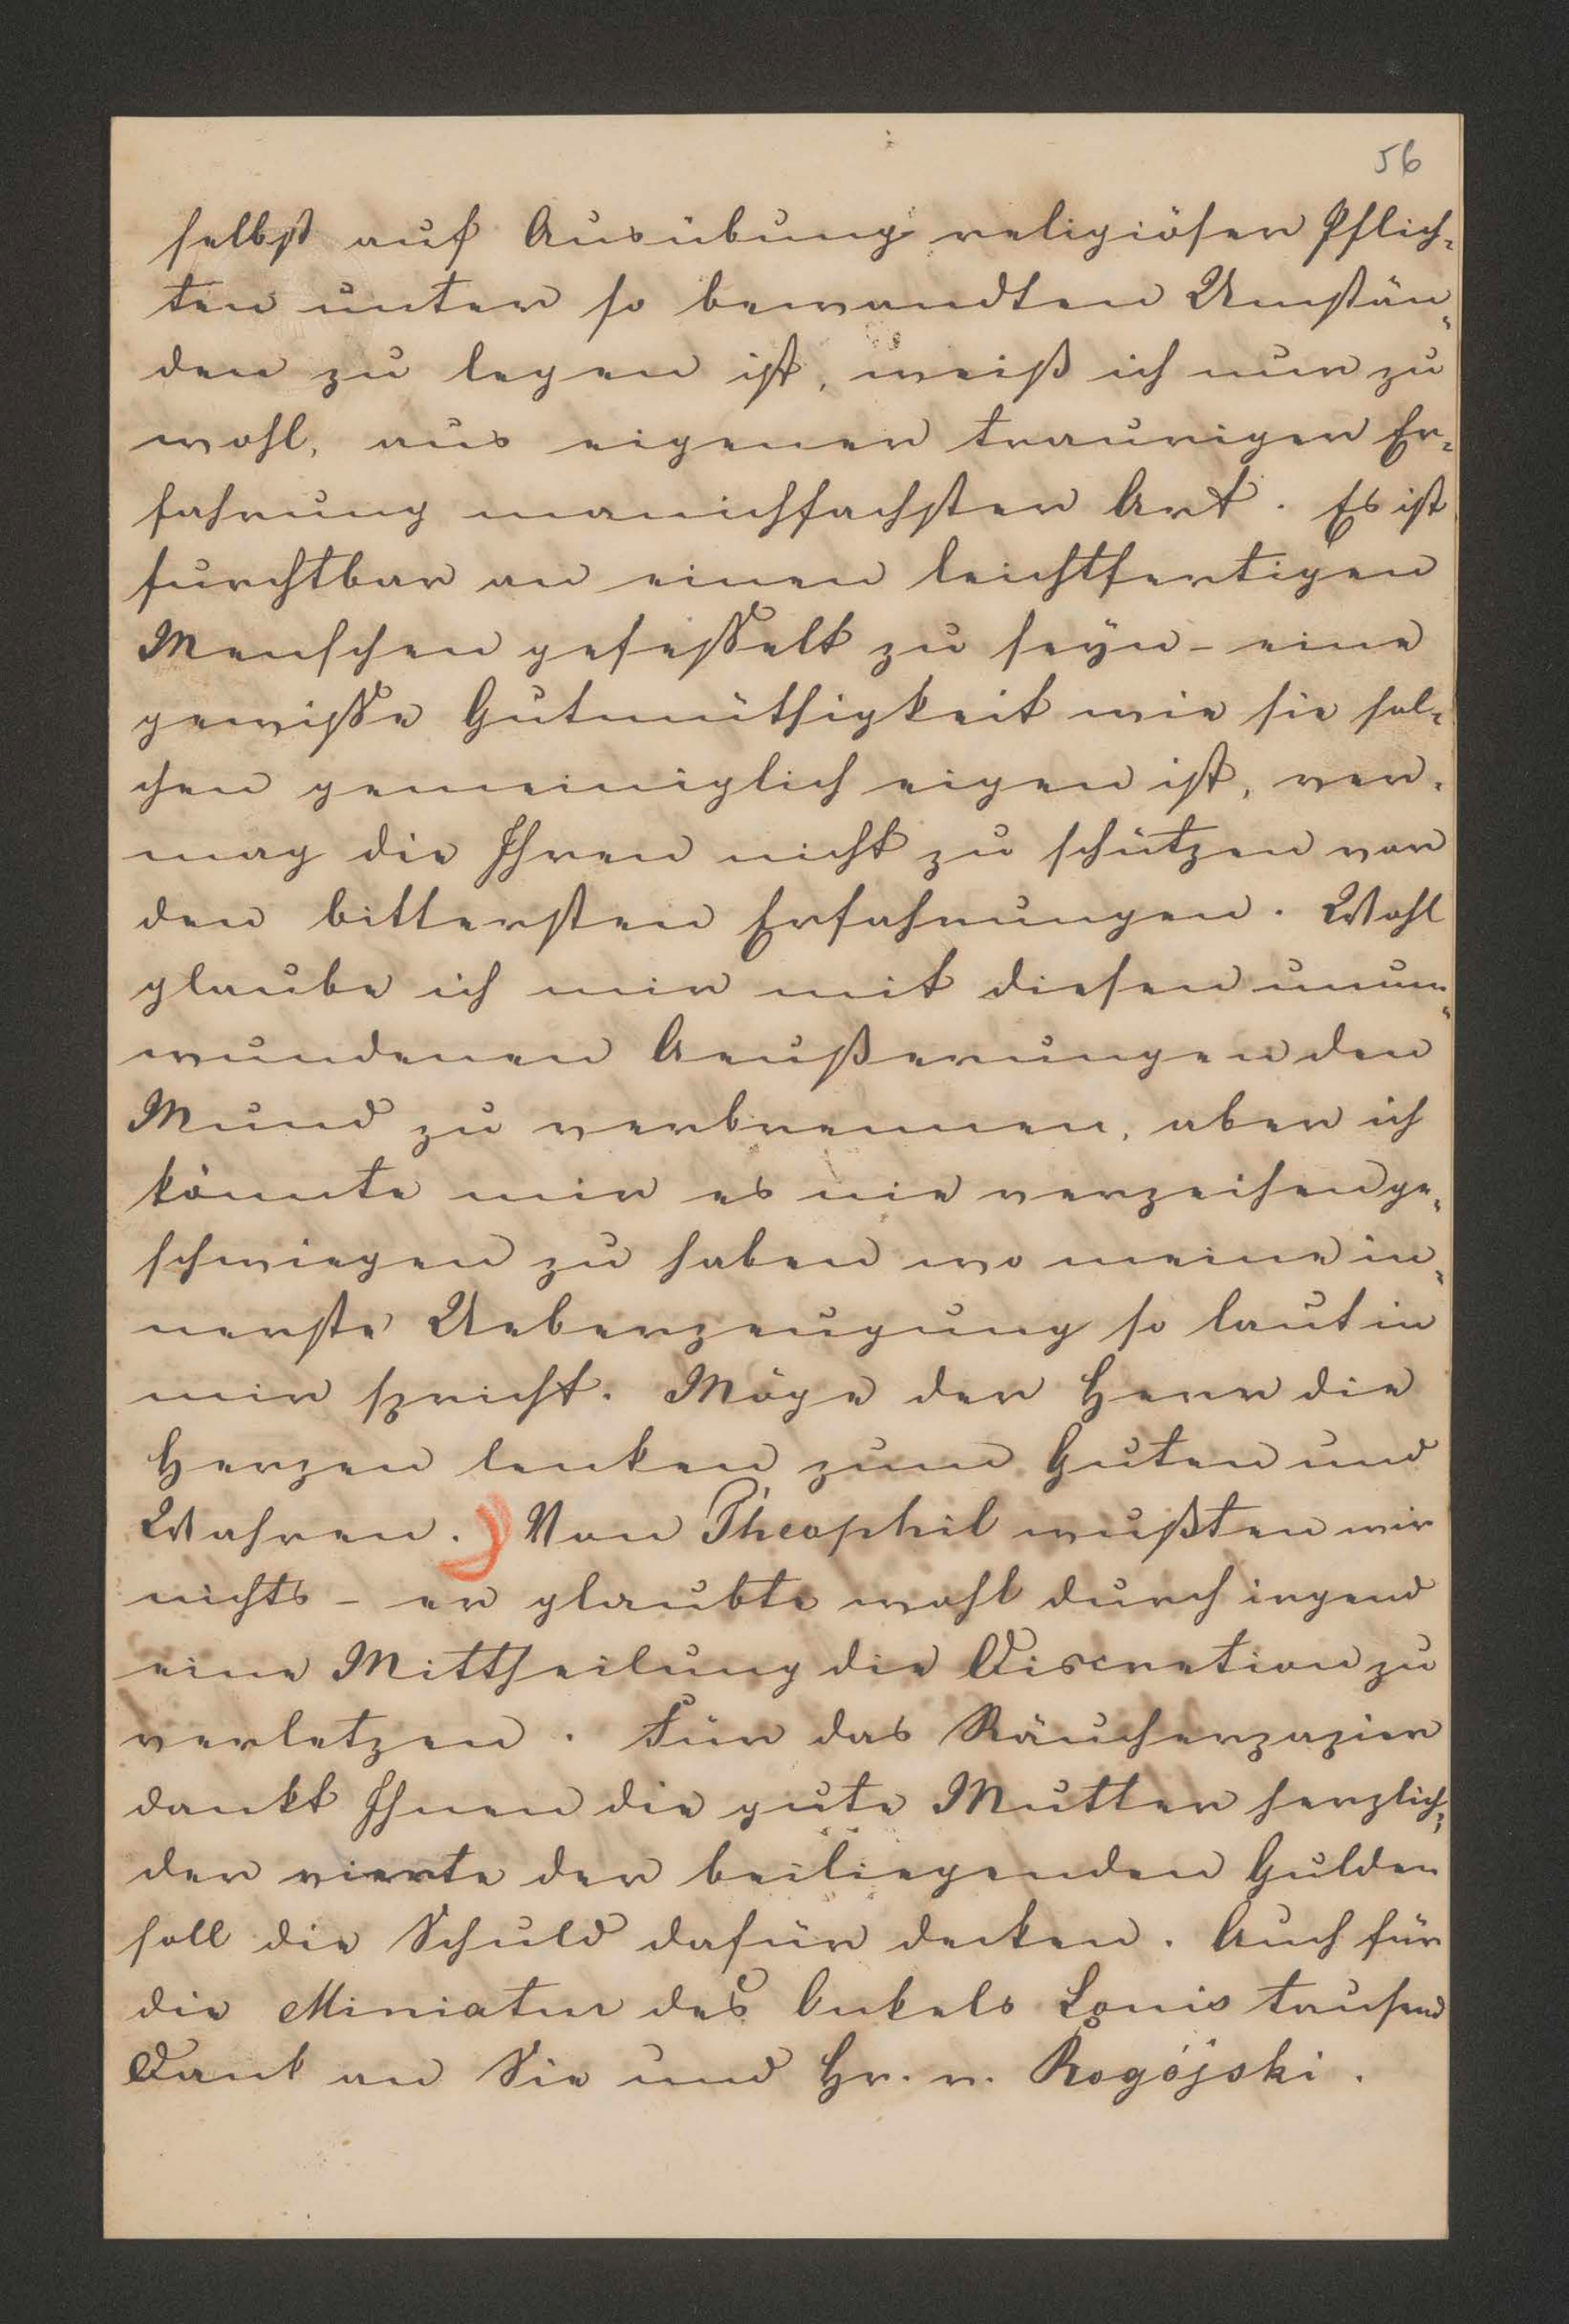 56
selbst auf Ausübung religiöser Pflich-
ten unter so bewandten Umstän-
den zu legen ist, weiß ich nur zu
wohl, aus eigener trauriger Er-
fahrung manichfachster Art. Es ist
furchtbar an einen leichtfertigen
Menschen gefesselt zu seyn - eine
gewisse Gutmüthigkeit wie sie sol-
chen gemeiniglich eigen ist, ver-
mag die Ihren nicht zu schützen vor
den bittersten Erfahrungen. Wohl
glaube ich mir mit diesen unum-
wundenen Aeußerungen den
Mund zu verbrennen, aber ich
könnte mir es nie verzeihen ge-
schwiegen zu haben wo meine in-
nerste Ueberzeugung so laut in
mir spricht. Möge der Herr die
Herzen lenken zum Guten und
Wahren. Von Théophil wußten wir
nichts - er glaubte wohl durch irgend
eine Mittheilung die Discretion zu
verletzen. Für das Räucherpapier
dankt Ihnen die gute Mutter herzlich;
der vierte der beiliegenden Gulden
soll die Schuld dafür decken. Auch für
die Miniatur des Onkels Louis tausend
Dank an Sie und Hr. v. Rogójski.